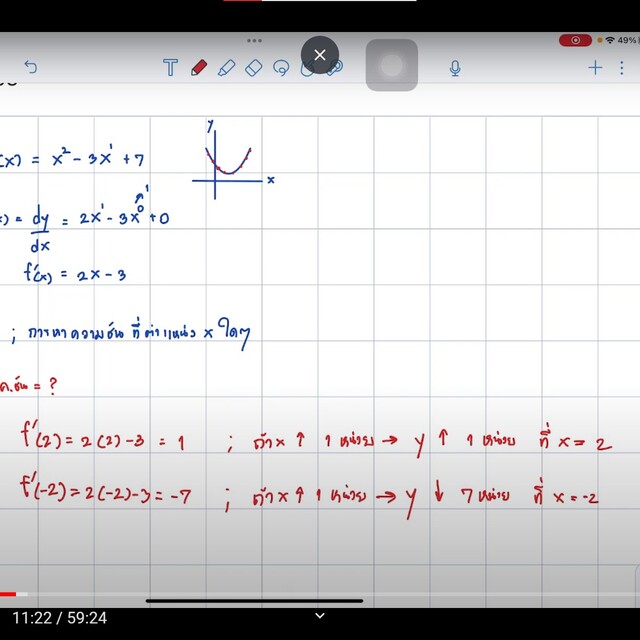 49%
y
(x) = x² - 3x¹ + 7
x
) = dy/dx = 2x¹ - 3x⁰ + 0
1
f'(x) = 2x - 3
; การหาความชันที่ตำแหน่ง x ใดๆ
ค.ชัน = ?
f'(2) = 2(2)-3 = 1 ; ถ้า x ↑ 1 หน่วย → y ↑ 1 หน่วย ที่ x = 2
f'(-2) = 2(-2)-3 = -7 ; ถ้า x ↑ 1 หน่วย → y ↓ 7 หน่วย ที่ x = -2
11:22 / 59:24